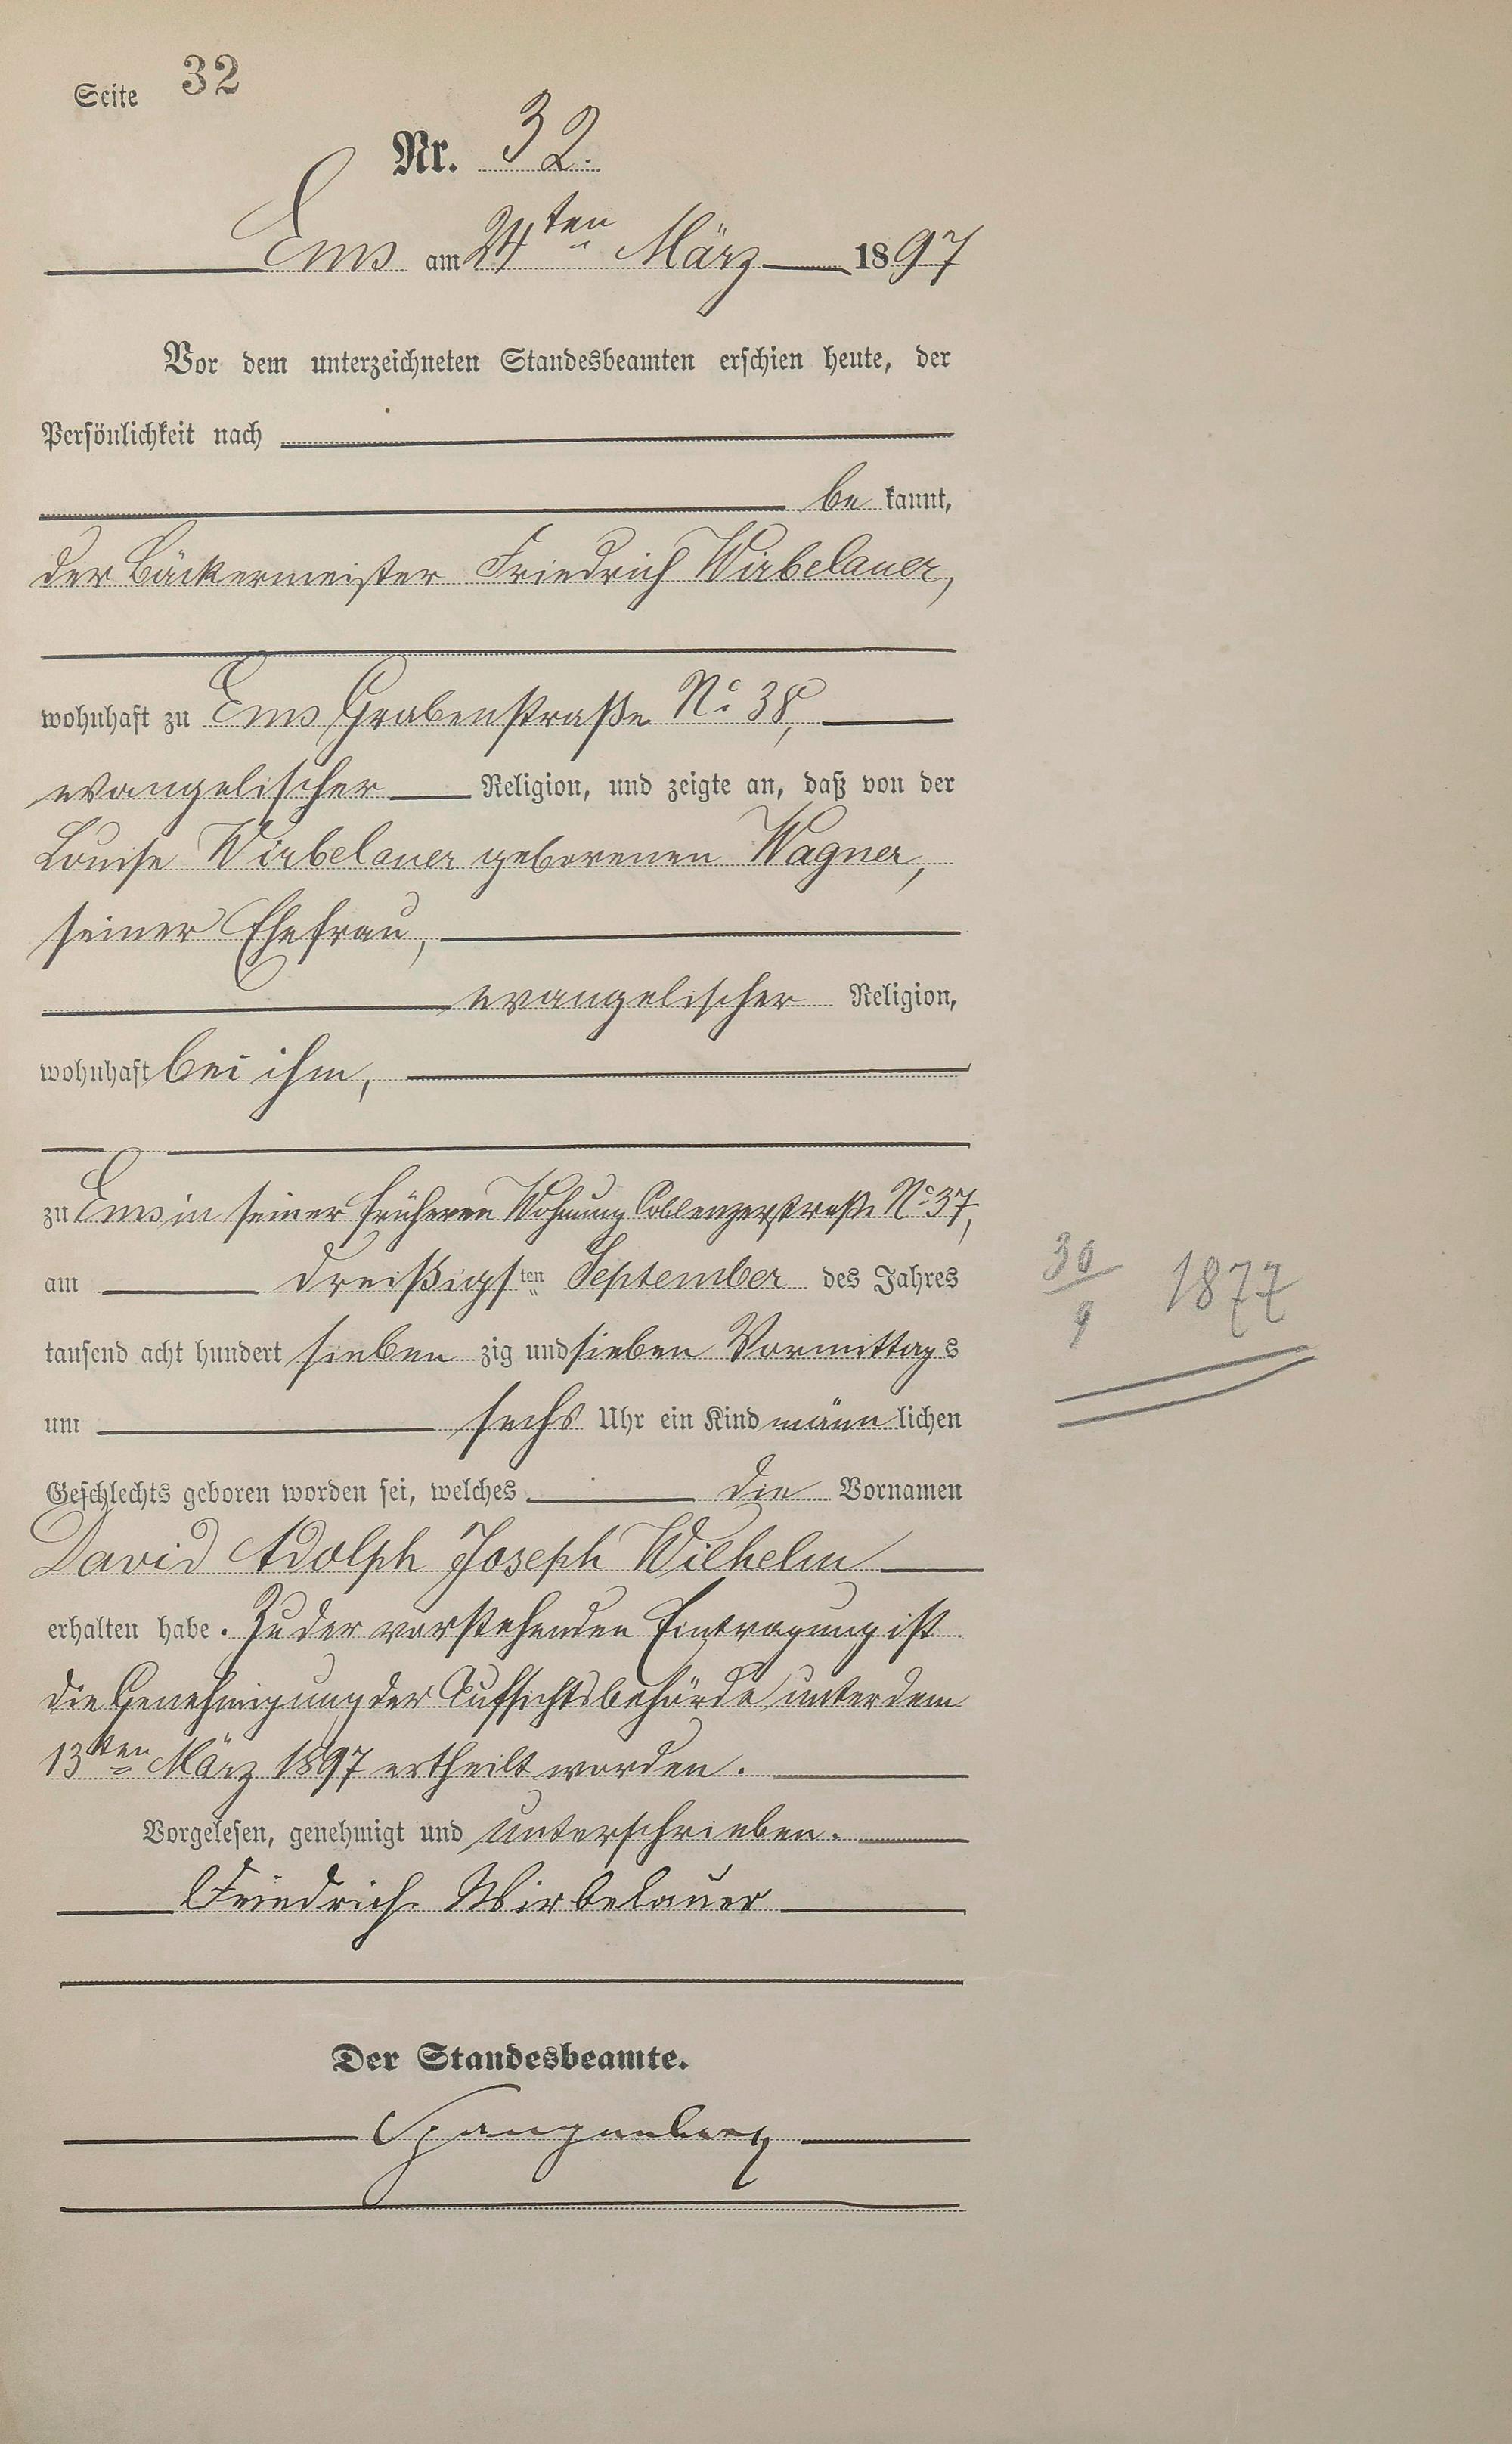 Seite 32
Nr. 32.
Ems am 24ten März 1897
Vor dem unterzeichneten Standesbeamten erschien heute, der
Persönlichkeit nach
be kannt,
der Bäckermeister Friedrich Wirbelauer,
wohnhaft zu Ems Grabenstraße No 38,
evangelischer Religion, und zeigte an, daß von der
Louise Wirbelauer geborenen Wagner,
seiner Ehefrau,
evangelischer Religion,
wohnhaft bei ihm,
zu Ems in seiner früheren Wohnung Coblenzerstraße No 37,
am dreißigsten September des Jahres
30/9 1877
tausend acht hundert sieben zig und sieben Vormittags
um sechs Uhr ein Kind männ lichen
Geschlechts geboren worden sei, welches die Vornamen
David Adolph Joseph Wilhelm
erhalten habe. Zu der vorstehenden Eintragung ist
die Genehmigung der Aufsichtsbehörde unter dem
13ten März 1897 ertheilt worden.
Vorgelesen, genehmigt und unterschrieben.
Friedrich Wirbelauer
Der Standesbeamte.
Spangenberg